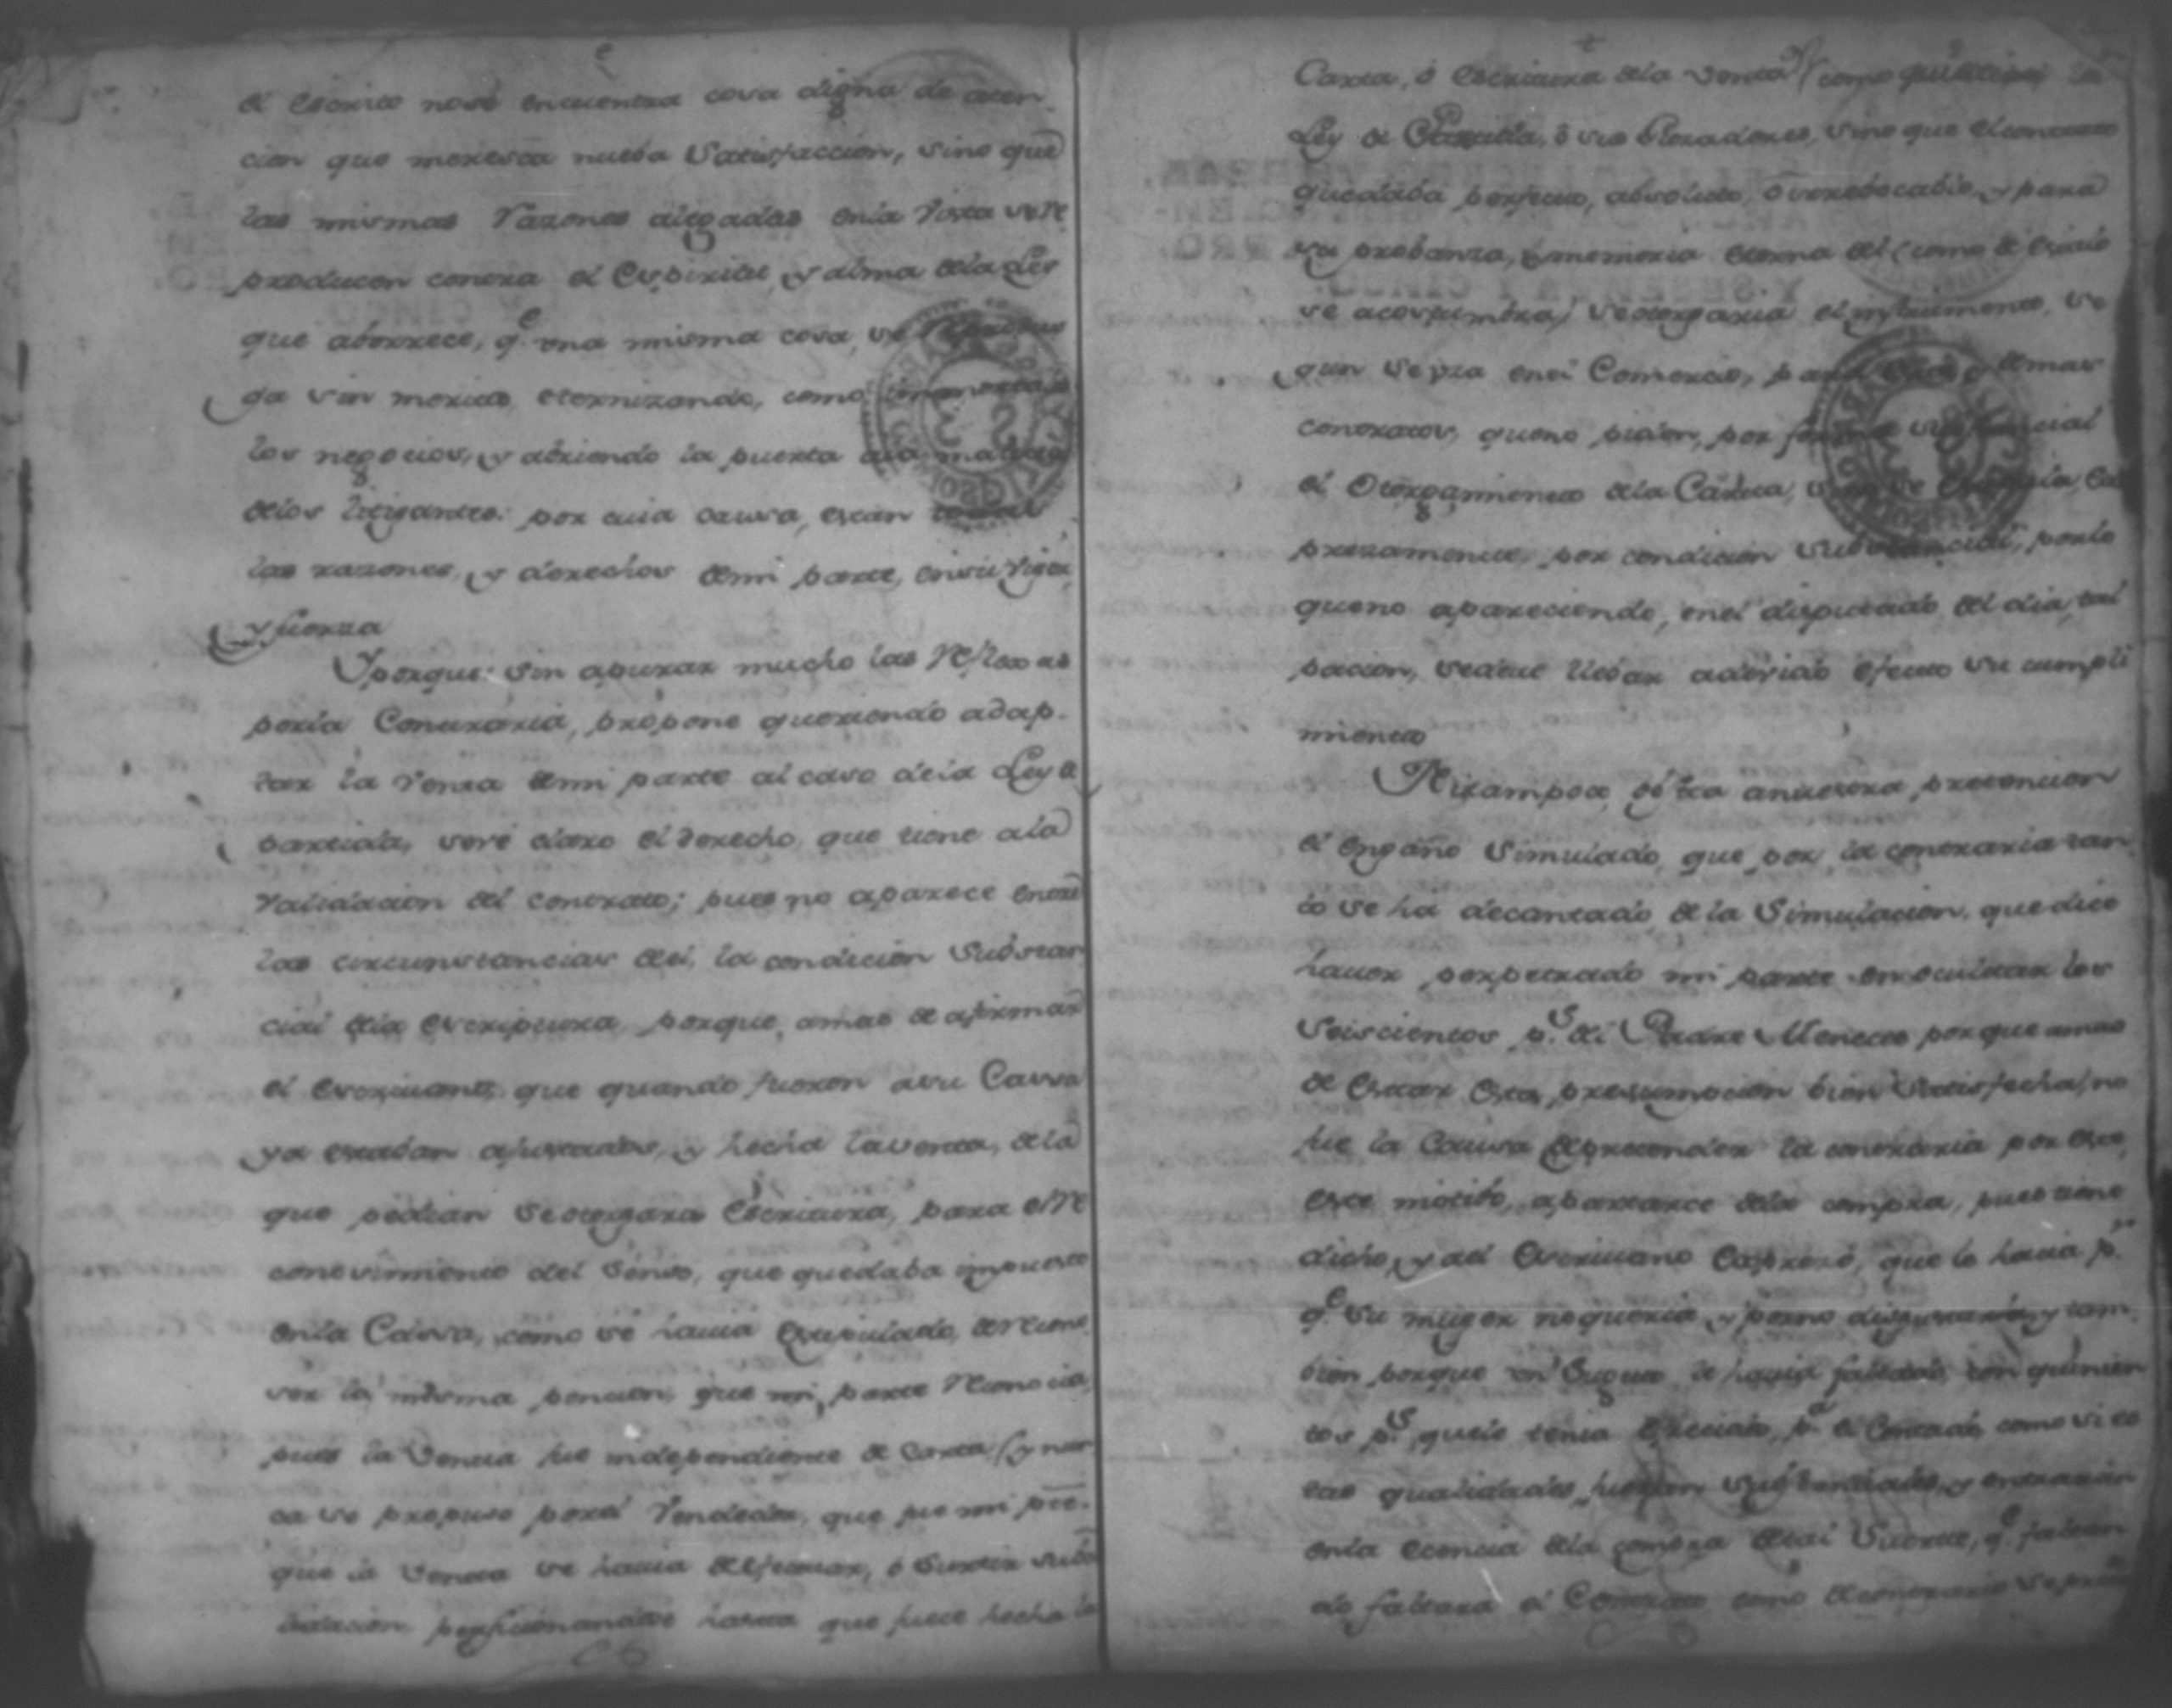 el escrito nose encuentra cosa digna de aten-
cion que meresca nueba Satisfaccion, sino que
las mismas razones alegadas enla vista se re
producen contra el Espiritu y alma dela Ley
que aborrece, q.e una misma cosa, se
ga sin merito eternizando, como
los negocios, y abriendo la puerta ala malicia
delos litigantes: por cuia causa, estan
las razones, y derechos demi parte, ensu vigor,
y fuerza
Yporque: sin apurar mucho las reflexas
porla Contraria, propone queriendo adap-
tar la Venta demi parte al caso dela Ley de
partida, seré claro el derecho que tiene ala
validacion del contrato; pues no aparece entre
las circunstancias del, la condicion Substan
cial dela escriptura porque, amas de afirmar
el escrivano, que quando fueron asu Cassa
ya estaban ajustados, y hecha laventa, dela
que pedian Seotorgara Escritura, para el re
conosimiento del Senso, que quedaba impuesto
enla Cassa, como se havia estipulado,
ser la misma pencion que mi parte reconocia,
pues la Venta fue independiente de Carta, y nun
ca se propuso porel Vendedor, que fue mi pte.
que la Venta se havia de efectuar, ó Surtir su
hasta que fuese hecha la
Carta, ó escritura dela venta (como la
Ley de Partida, ó sus Glosadores, sino que elcontrato
quedaba perfecto, absoluto, é yrrebocable, y para
su probanza, y memoria eterna del (como de Estilo
se acostumbra) seotorgaria el ynstrumento, se
gun se usa enel Comercio, para demas
contratos, queno piden, por forma substancial
el Otorgamiento dela Carta,
presamente, por condicion substancial, porlo
queno apareciendo, enel disputado del dia, tal
pacion, sedeve llebar adevido efecto su cumpli
miento
Nitampoco, obsta anuestra pretencion
el engaño Simulado, que por la contraria tan
to se ha decantado, de la Simulacion, que dice
haver perpetrado mi parte en ocultar los
Seiscientos p.s del Padre Meneces porque amas
de estar esta presumpcion bien Satisfecha, no
fue la Causa de pretender la contraria por este
este motibo, apartarce dela compra, pues tiene
dicho, y asi Escrivano Expresó, que lo hacia p.r
q.e su muger noqueria, y porno disgustarla, y tam
bien porque un Sugeto le havia faltado, con quinien
tos p.s, quele tenia ofrecido, p.a el Contado, como si es
tas qualidades, fueran Substanciales, y entraran
enla escencia dela compra detal Suerte, q.e faltan
do faltara el Contrato como